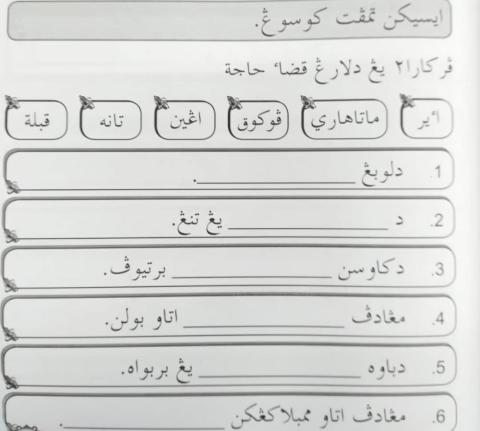 ايسيکن تمڤت کوسوڠ.
ڤرکارا٢ يڠ دلارڠ قضاء حاجة
اءير ماتاهاري ڤوکوق اڠين تانه قبلة
1. دلوبڠ ____________.
2. د ____________ يڠ تنڠ.
3. دکاوسن ____________ برتيوڤ.
4. مڠادڤ ____________ اتاو بولن.
5. دباوه ____________ يڠ بربواه.
6. مڠادڤ اتاو ممبلاکڠکن ____________.